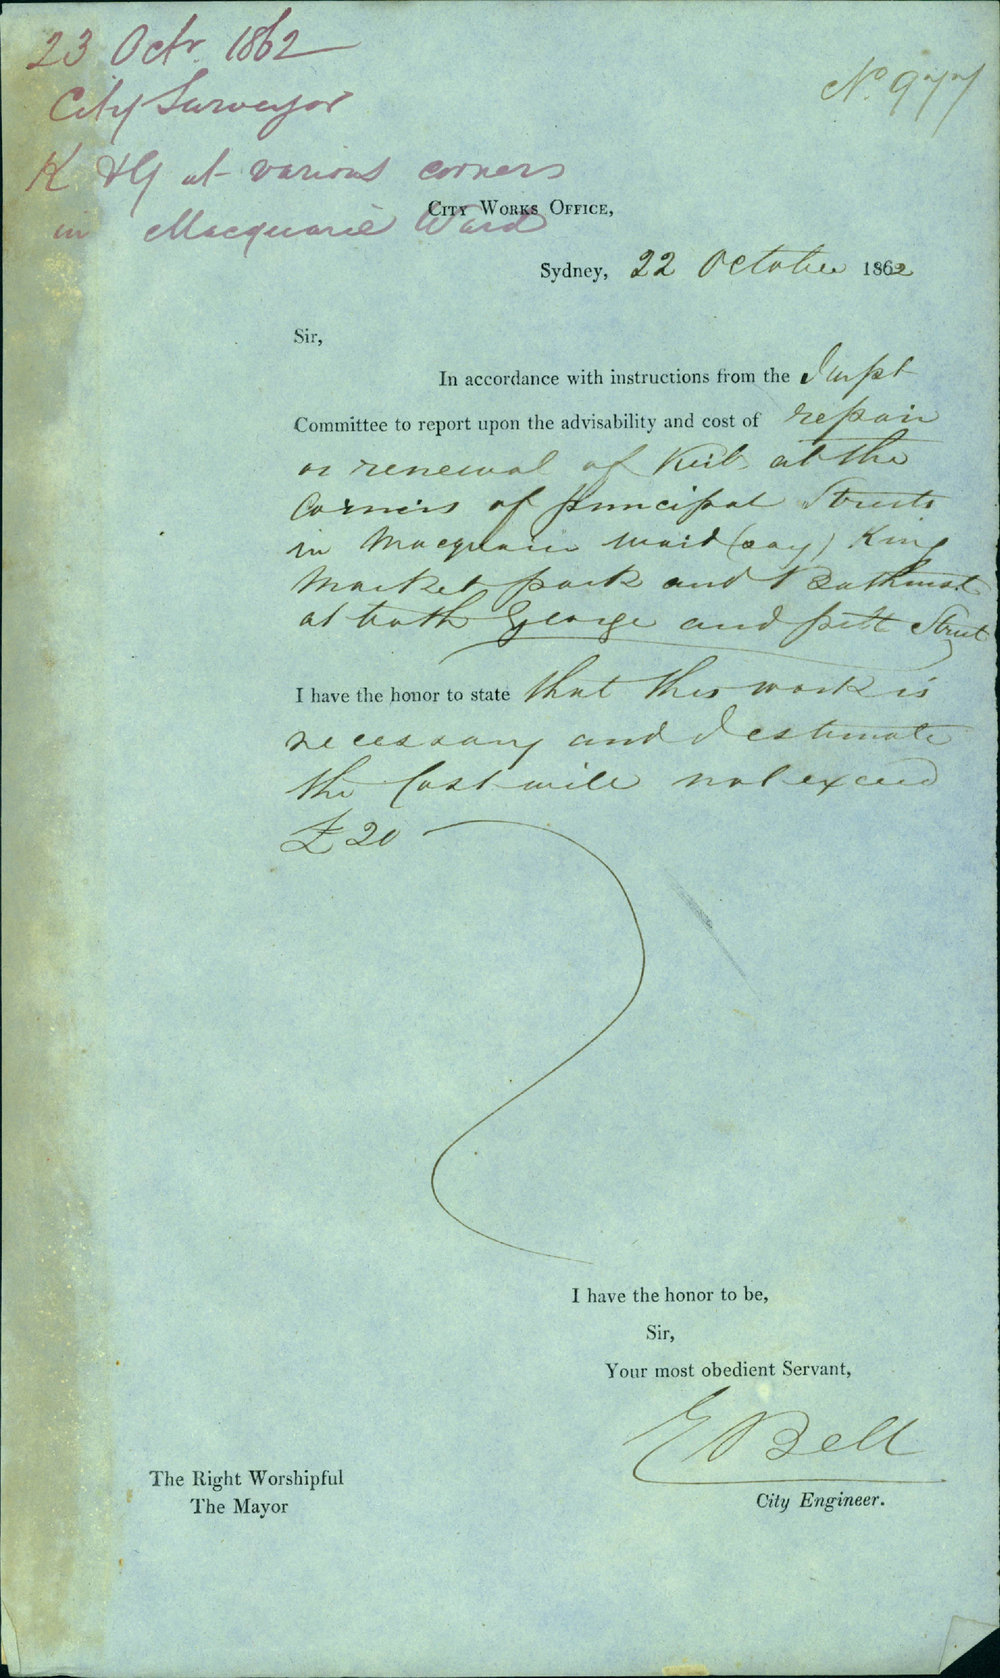 23 Octr. 1862
City Surveyor
K & G at various corners
in Macquarie Ward
No. 977
CITY WORKS OFFICE,
Sydney, 22 October 1862
Sir,
In accordance with instructions from the Impt
Committee to report upon the advisability and cost of repair
or renewal of Kerb at the
Corners of principal Streets
in Macquarie ward (say) King
Market park and Bathurst
at both George and pitt Street
I have the honor to state that this work is
necessary and I estimate
the Cost will not exceed
£20
I have the honor to be,
Sir,
Your most obedient Servant,
E Bell
City Engineer.
The Right Worshipful
The Mayor